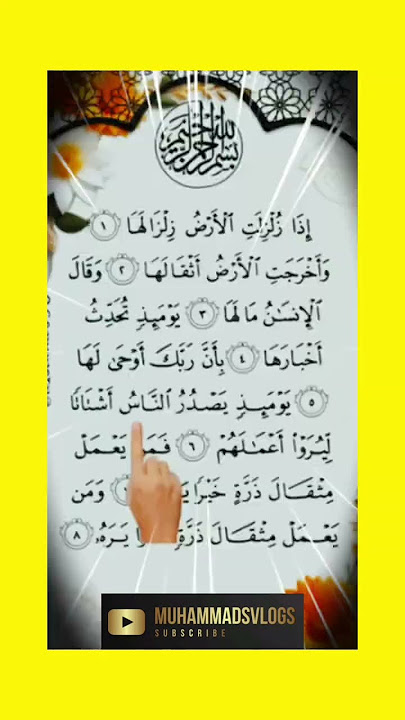 بسم الله الرحمن الرحيم
إِذَا زُلْزِلَتِ ٱلْأَرْضُ زِلْزَالَهَا ١
وَأَخْرَجَتِ ٱلْأَرْضُ أَثْقَالَهَا ٢ وَقَالَ
ٱلْإِنسَـٰنُ مَا لَهَا ٣ يَوْمَئِذٍ تُحَدِّثُ
أَخْبَارَهَا ٤ بِأَنَّ رَبَّكَ أَوْحَىٰ لَهَا
٥ يَوْمَئِذٍ يَصْدُرُ ٱلنَّاسُ أَشْتَاتًا
لِّيُرَوْا۟ أَعْمَـٰلَهُمْ ٦ فَمَن يَعْمَلْ
مِثْقَالَ ذَرَّةٍ خَيْرًا وَمَن
يَعْمَلْ مِثْقَالَ ذَرَّةٍ يَرَهُۥ ٨
MUHAMMADSVLOGS
SUBSCRIBE